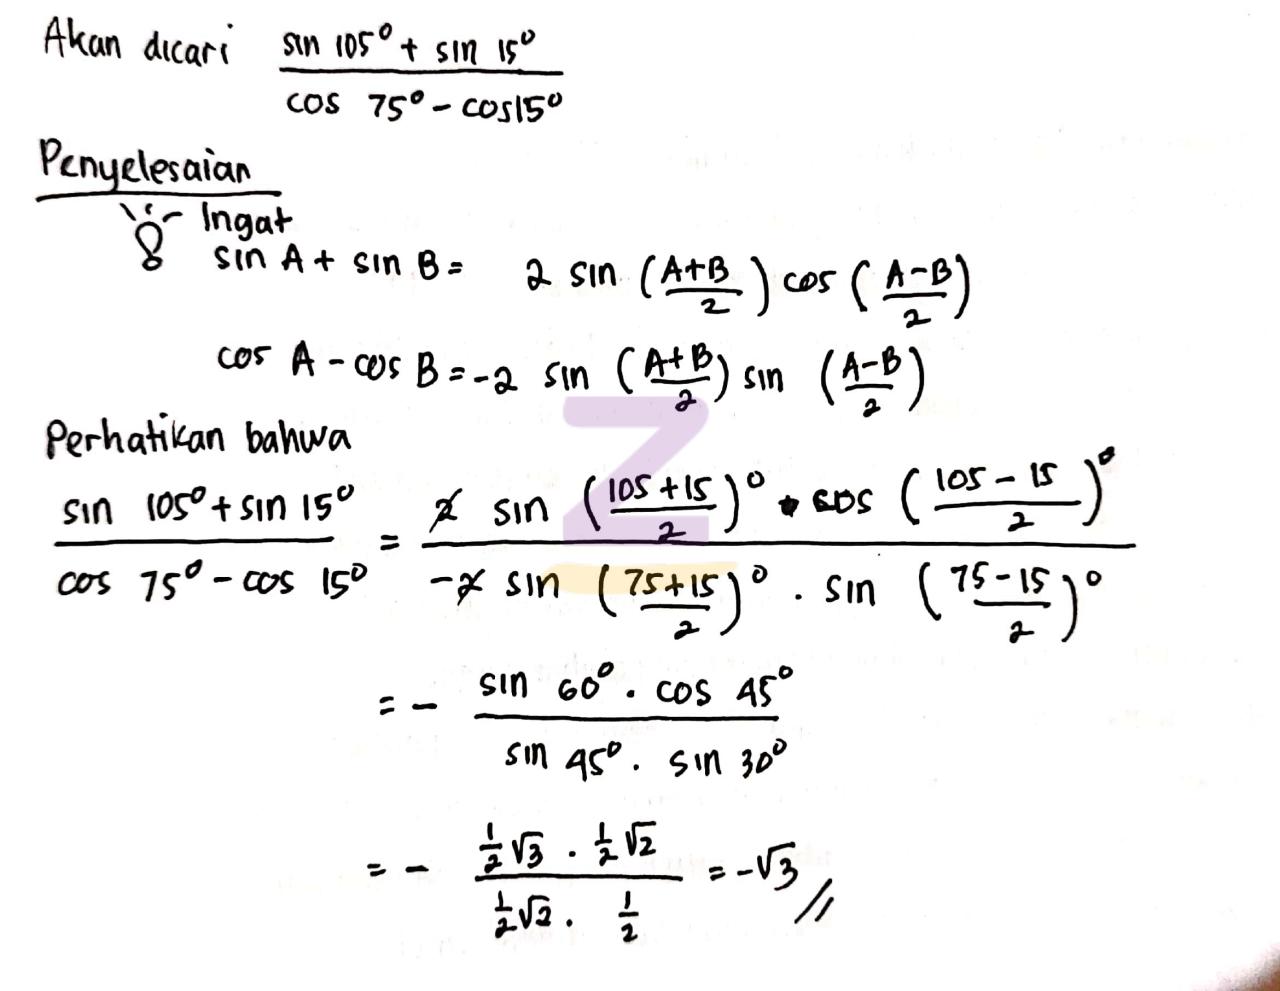 Akan dicari (sin 105° + sin 15°)/(cos 75° - cos15°)
Penyelesaian
Ingat
sin A + sin B = 2 sin ((A+B)/2) cos ((A-B)/2)
cos A - cos B = -2 sin ((A+B)/2) sin ((A-B)/2)
Perhatikan bahwa
(sin 105° + sin 15°)/(cos 75° - cos 15°) = (2 sin ((105+15)/2)° . cos ((105-15)/2)°)/(-2 sin ((75+15)/2)° . sin ((75-15)/2)°)
= - (sin 60° . cos 45°)/(sin 45° . sin 30°)
= - (1/2 √3 . 1/2 √2)/(1/2 √2 . 1/2) = -√3 //